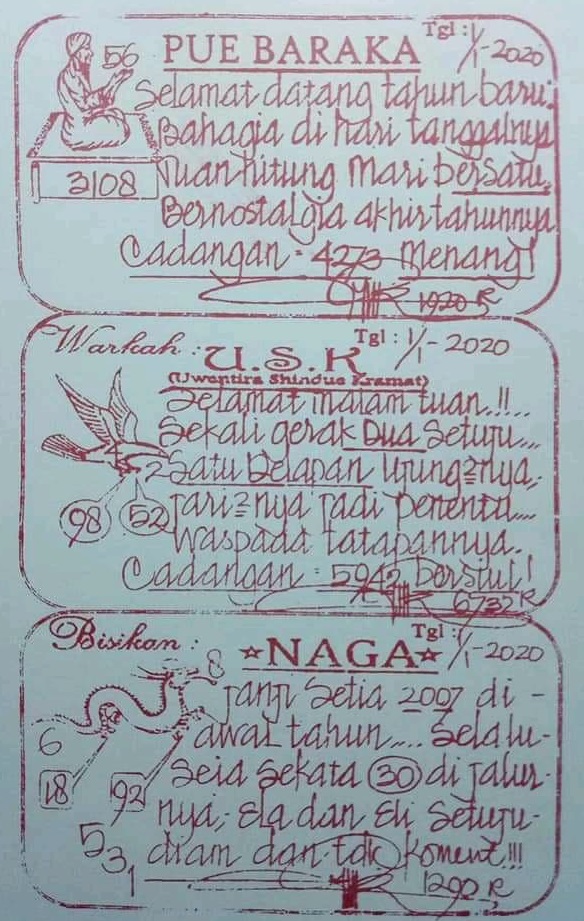 Tgl : 1/1-2020
56 PUE BARAKA
Selamat datang tahun baru.
Bahagia di hari tanggalnya
3108 Tuan hitung mari bersatu,
Bernostalgia akhir tahunnya
Cadangan = 4273 Menang!
1920 R
Warkah : Tgl : 1/1-2020
U.S.K
(Uwentira Shindue Kramat)
Selamat malam tuan..!!..
Sekali gerak Dua Setuju...
Satu Delapan Ujung2nya,
98 52 Jari2nya jadi Penentu...
Waspada tatapannya.
Cadangan = 5942 berstul!
6732 R
Bisikan : Tgl : 1/1-2020
☆NAGA☆
8 Janji Setia 2007 di -
6 awal tahun.... Selalu-
18 92 Seia Sekata 30 di jalur-
nya, Ela dan Eli Setuju-
531 diam dan tdk Koment.!!!
1290 R